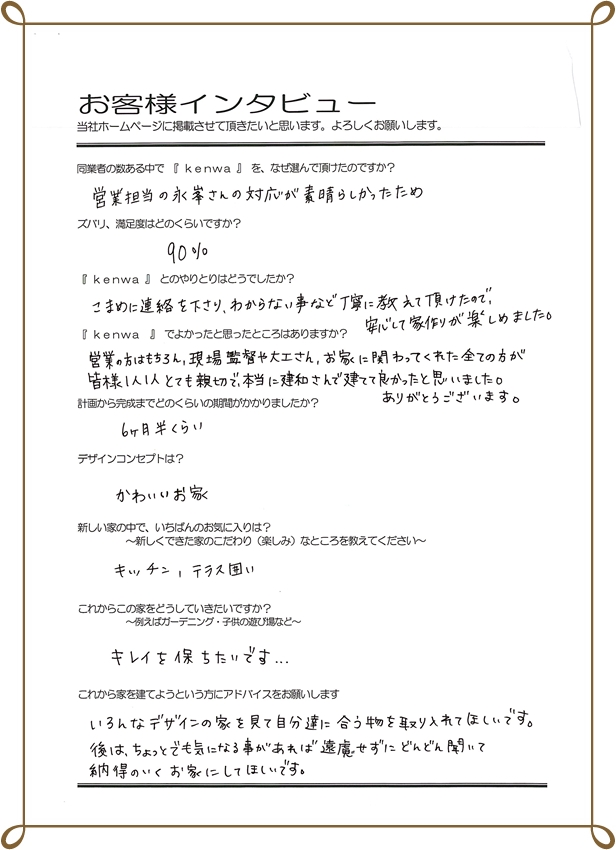 お客様インタビュー
当社ホームページに掲載させて頂きたいと思います。よろしくお願いします。
同業者の数ある中で 『 kenwa 』 を、なぜ選んで頂けたのですか？
営業担当の永峯さんの対応が素晴らしかったため
ズバリ、満足度はどのくらいですか？
90%
『 kenwa 』 とのやりとりはどうでしたか？
こまめに連絡を下さり、わからない事など丁寧に教えて頂けたので、
安心して家作りが楽しめました。
『 kenwa 』 でよかったと思ったところはありますか？
営業の方はもちろん、現場監督や大工さん、お家に関わってくれた全ての方が
皆様1人1人とても親切で、本当に建和さんで建てて良かったと思いました。
ありがとうございます。
計画から完成までどのくらいの期間がかかりましたか？
6ヶ月半くらい
デザインコンセプトは？
かわいいお家
新しい家の中で、いちばんのお気に入りは？
～新しくできた家のこだわり（楽しみ）なところを教えてください～
キッチン、テラス囲い
これからこの家をどうしていきたいですか？
～例えばガーデニング・子供の遊び場など～
キレイを保ちたいです...
これから家を建てようという方にアドバイスをお願いします
いろんなデザインの家を見て自分達に合う物を取り入れてほしいです。
後は、ちょっとでも気になる事があれば遠慮せずにどんどん聞いて
納得のいくお家にしてほしいです。